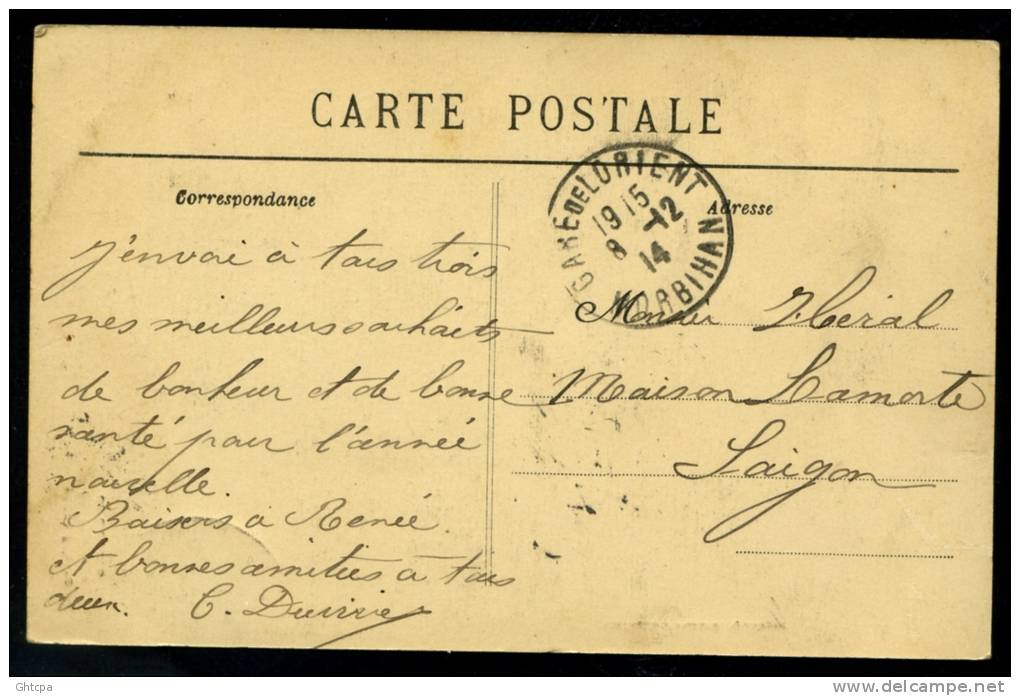 CARTE POSTALE
Correspondance
Adresse
GARE DE LORIENT
1915
8 -12
14
MORBIHAN
J'envoi à tous trois
mes meilleurs souhaits
de bonheur et de bonne
santé pour l'année
nouvelle.
Baisers à Renée.
et bonnes amitiés à tous
deux. C.
Monsieur
Maison Lamorte
Saigon
Ghtcpa
delcampe.net